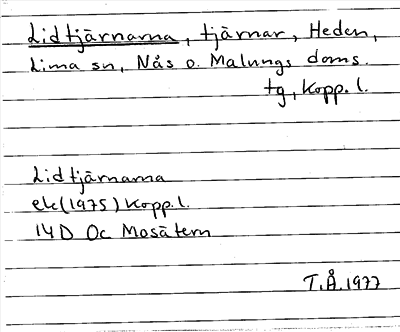 Lidtjärnarna, tjärnar, Heden,
Lima sn, Nås o. Malungs doms.
tg, Kopp. l.
Lidtjärnarna
ek (1975) Kopp. l.
14D 0c Mosätern
T.Å. 1977